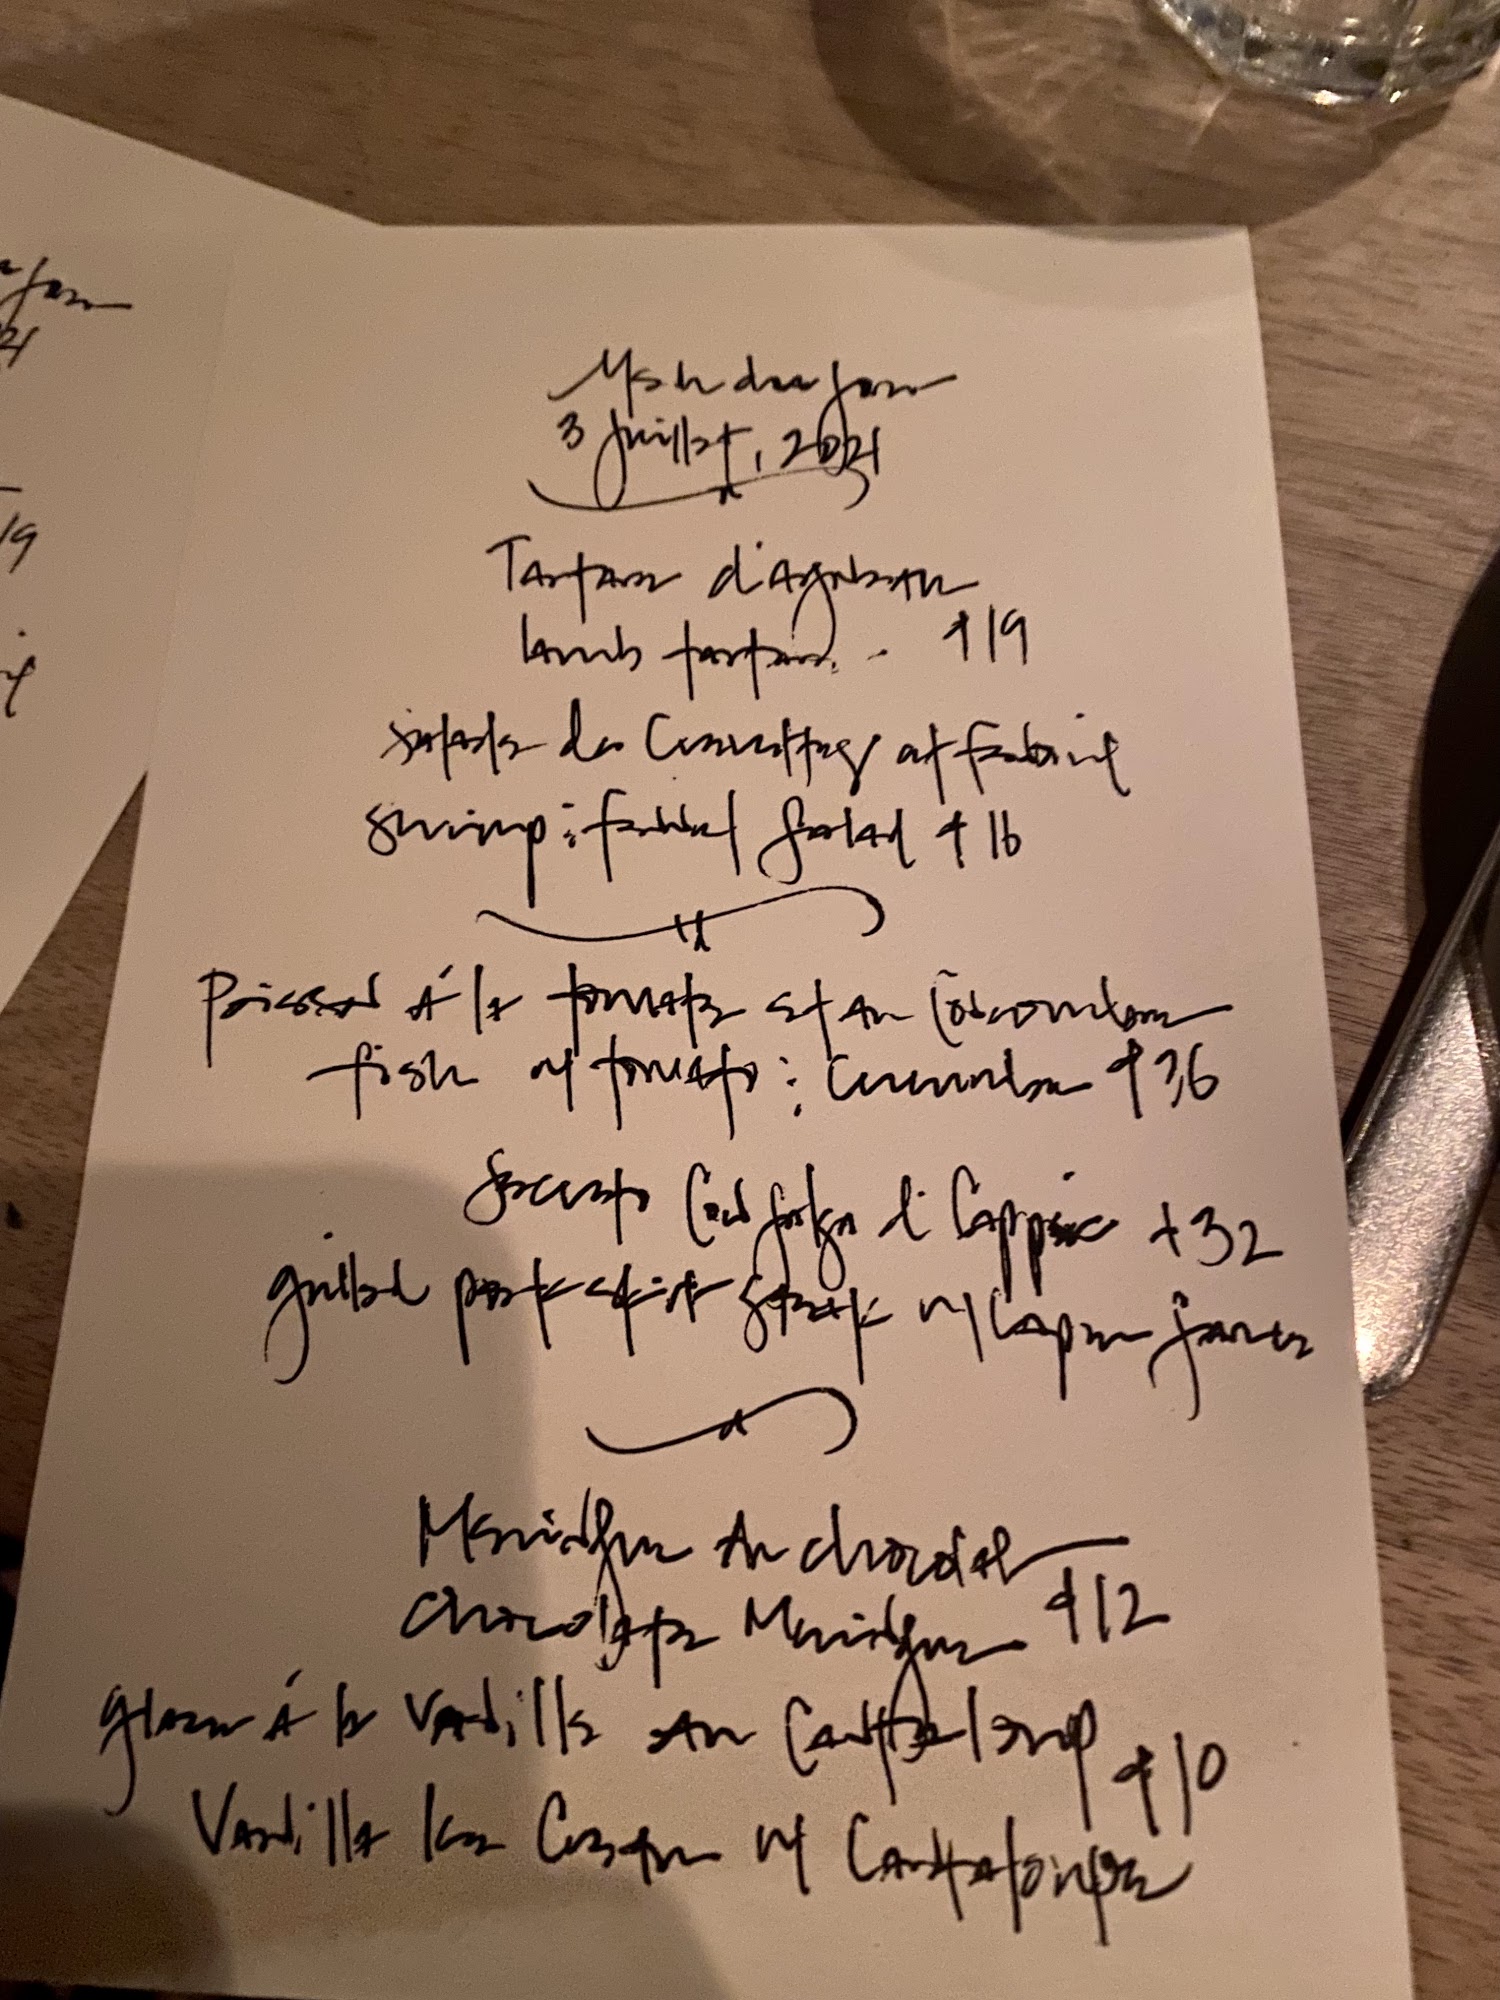 Menu du jour
3 Juillet, 2021
Tartare d'agneau
lamb tartare $19
salade de Crevettes et fenouil
shrimp & fennel salad $16
Poisson à la tomate et au Concombre
fish w/ tomato & Cucumber $36
$32
grilled pork skirt steak w/ Caper sauce
Meringue au chocolat
chocolate Meringue $12
glace à la Vanille au Cantaloup
$10
Vanilla Ice Cream w/ Cantaloupe
19